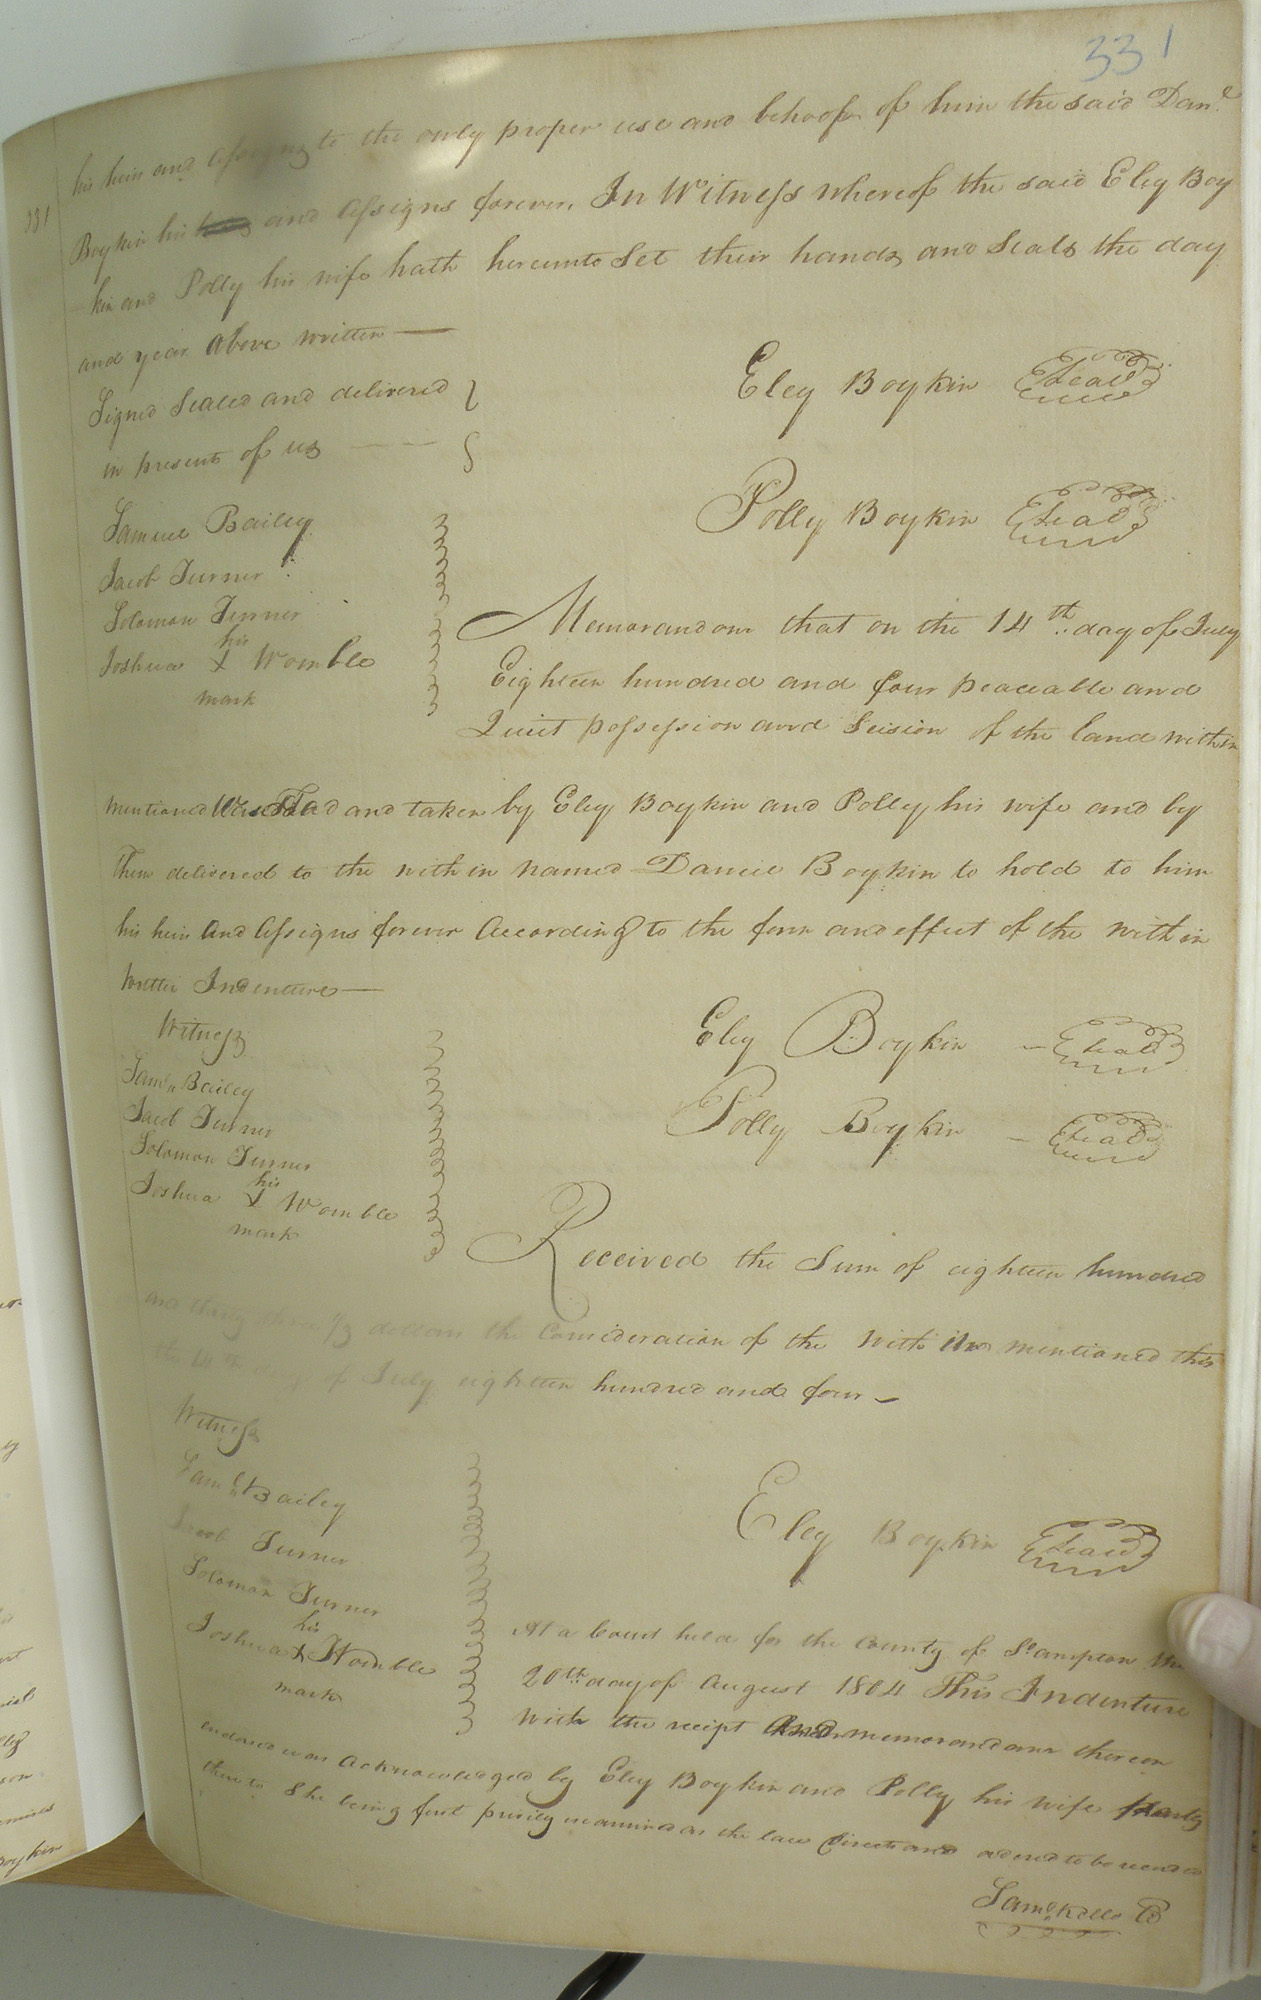 331
331
his heirs and assigns to the only proper use and behoof of him the said Dan.l
Boykin his heirs and assigns forever. In Witness whereof the said Eley Boy
kin and Polly his wife hath hereunto Set their hands and Seals the day
and year above written —
Signed Sealed and delivered
in presents of us —
Eley Boykin Seal
Polly Boykin Seal
Samuel Bailey
Jacob Turner
Solomon Turner
his
Joshua X Womble
mark
Memorandom that on the 14th day of July
Eighteen hundred and four peaceable and
Quiet possession and Seision of the land within
mentioned Was Had and taken by Eley Boykin and Polly his wife and by
Them delivered to the within named Daniel Boykin to hold to him
his heirs and assigns forever According to the form and effect of the within
written Indenture —
Witness
Eley Boykin Seal
Polly Boykin Seal
Saml. Bailey
Jacob Turner
Solomon Turner
his
Joshua X Womble
mark
Received the Sum of eighteen hundred
and thirty three 1/3 dollars the Consideration of the within mentioned this
the 14th day of July eighteen hundred and four —
Witness
Saml. Bailey
Jacob Turner
Solomon Turner
his
Joshua X Womble
mark
Eley Boykin Seal
At a Court held for the County of So.ampton the
20th day of August 1804 This Indenture
with the recipt And memorandam thereon
endorsed was Acknowledged by Eley Boykin and Polly his wife party
thereto She being first privily examined as the law directs and ordered to be recorded
Saml. Kello C